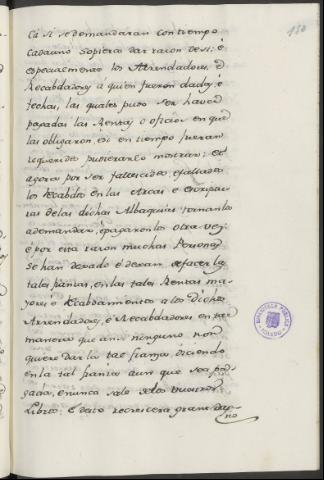 130
Cà si se demandaran con tiempo
cadauno sopiera dar raçon de si: è
especialmente los Arrendadores, è
Recabdadores à quien fueron dadas è
fechas, las quales puso ser haver
pagadas las Rentas ò oficios en que
las obligaron, è si en tiempo fueran
requeridos pudieranlo mostrar; et
agora por ser fallescidos, è faltados
los Recabdos en las Arcas è Escripturas
de las dichas Albaquias tornanlos
a demandar, è paganlos otra vez;
è por esta raçon muchas Personas
se han dexado è dexan de facer las
tales fianzas, en las tales Rentas ma-
yores è Recabdamientos a los Dichos
Arrendadores, è Recabdadores en tal
manera que ansi ninguno non
quiere dar la tal fianza, diciendo
en la tal fianza aun que sea pa-
gada, nunca sale de los vuestros
Libros: è desto recrescera grand da-
ño
BIBLIOTECA PUBLICA
TOLEDO